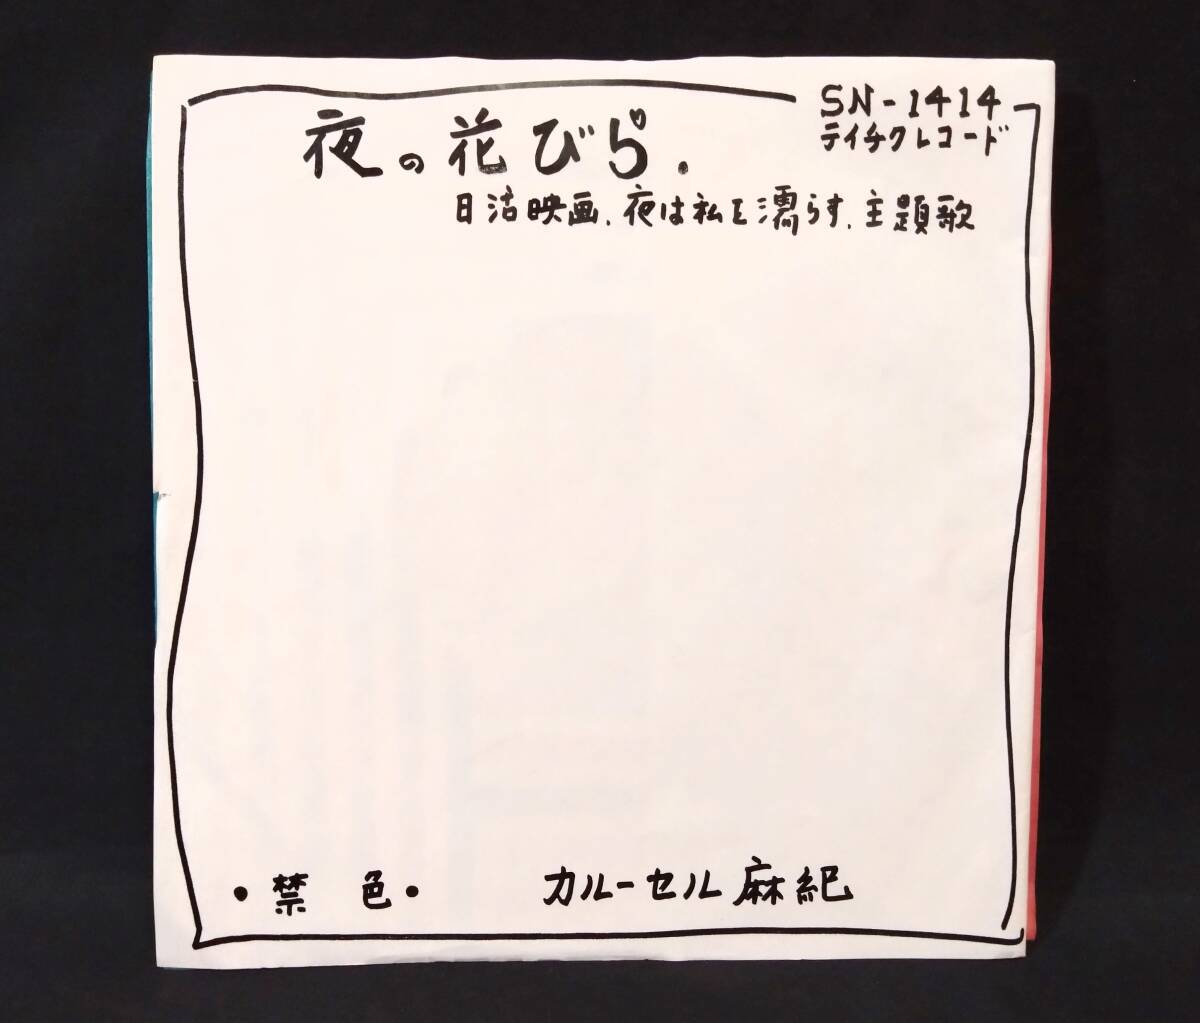 SN-1414
テイチクレコード
夜の花びら.
日活映画、夜は私を濡らす、主題歌
・禁色・ カルーセル麻紀